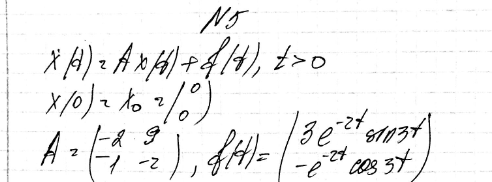 N5
ẋ(t) = A x(t) + f(t), t > 0
x(0) = x₀ = (0 0)
A = (-2 9 -1 -2), f(t) = (3e^{-2t} sin3t -e^{-2t} cos3t)